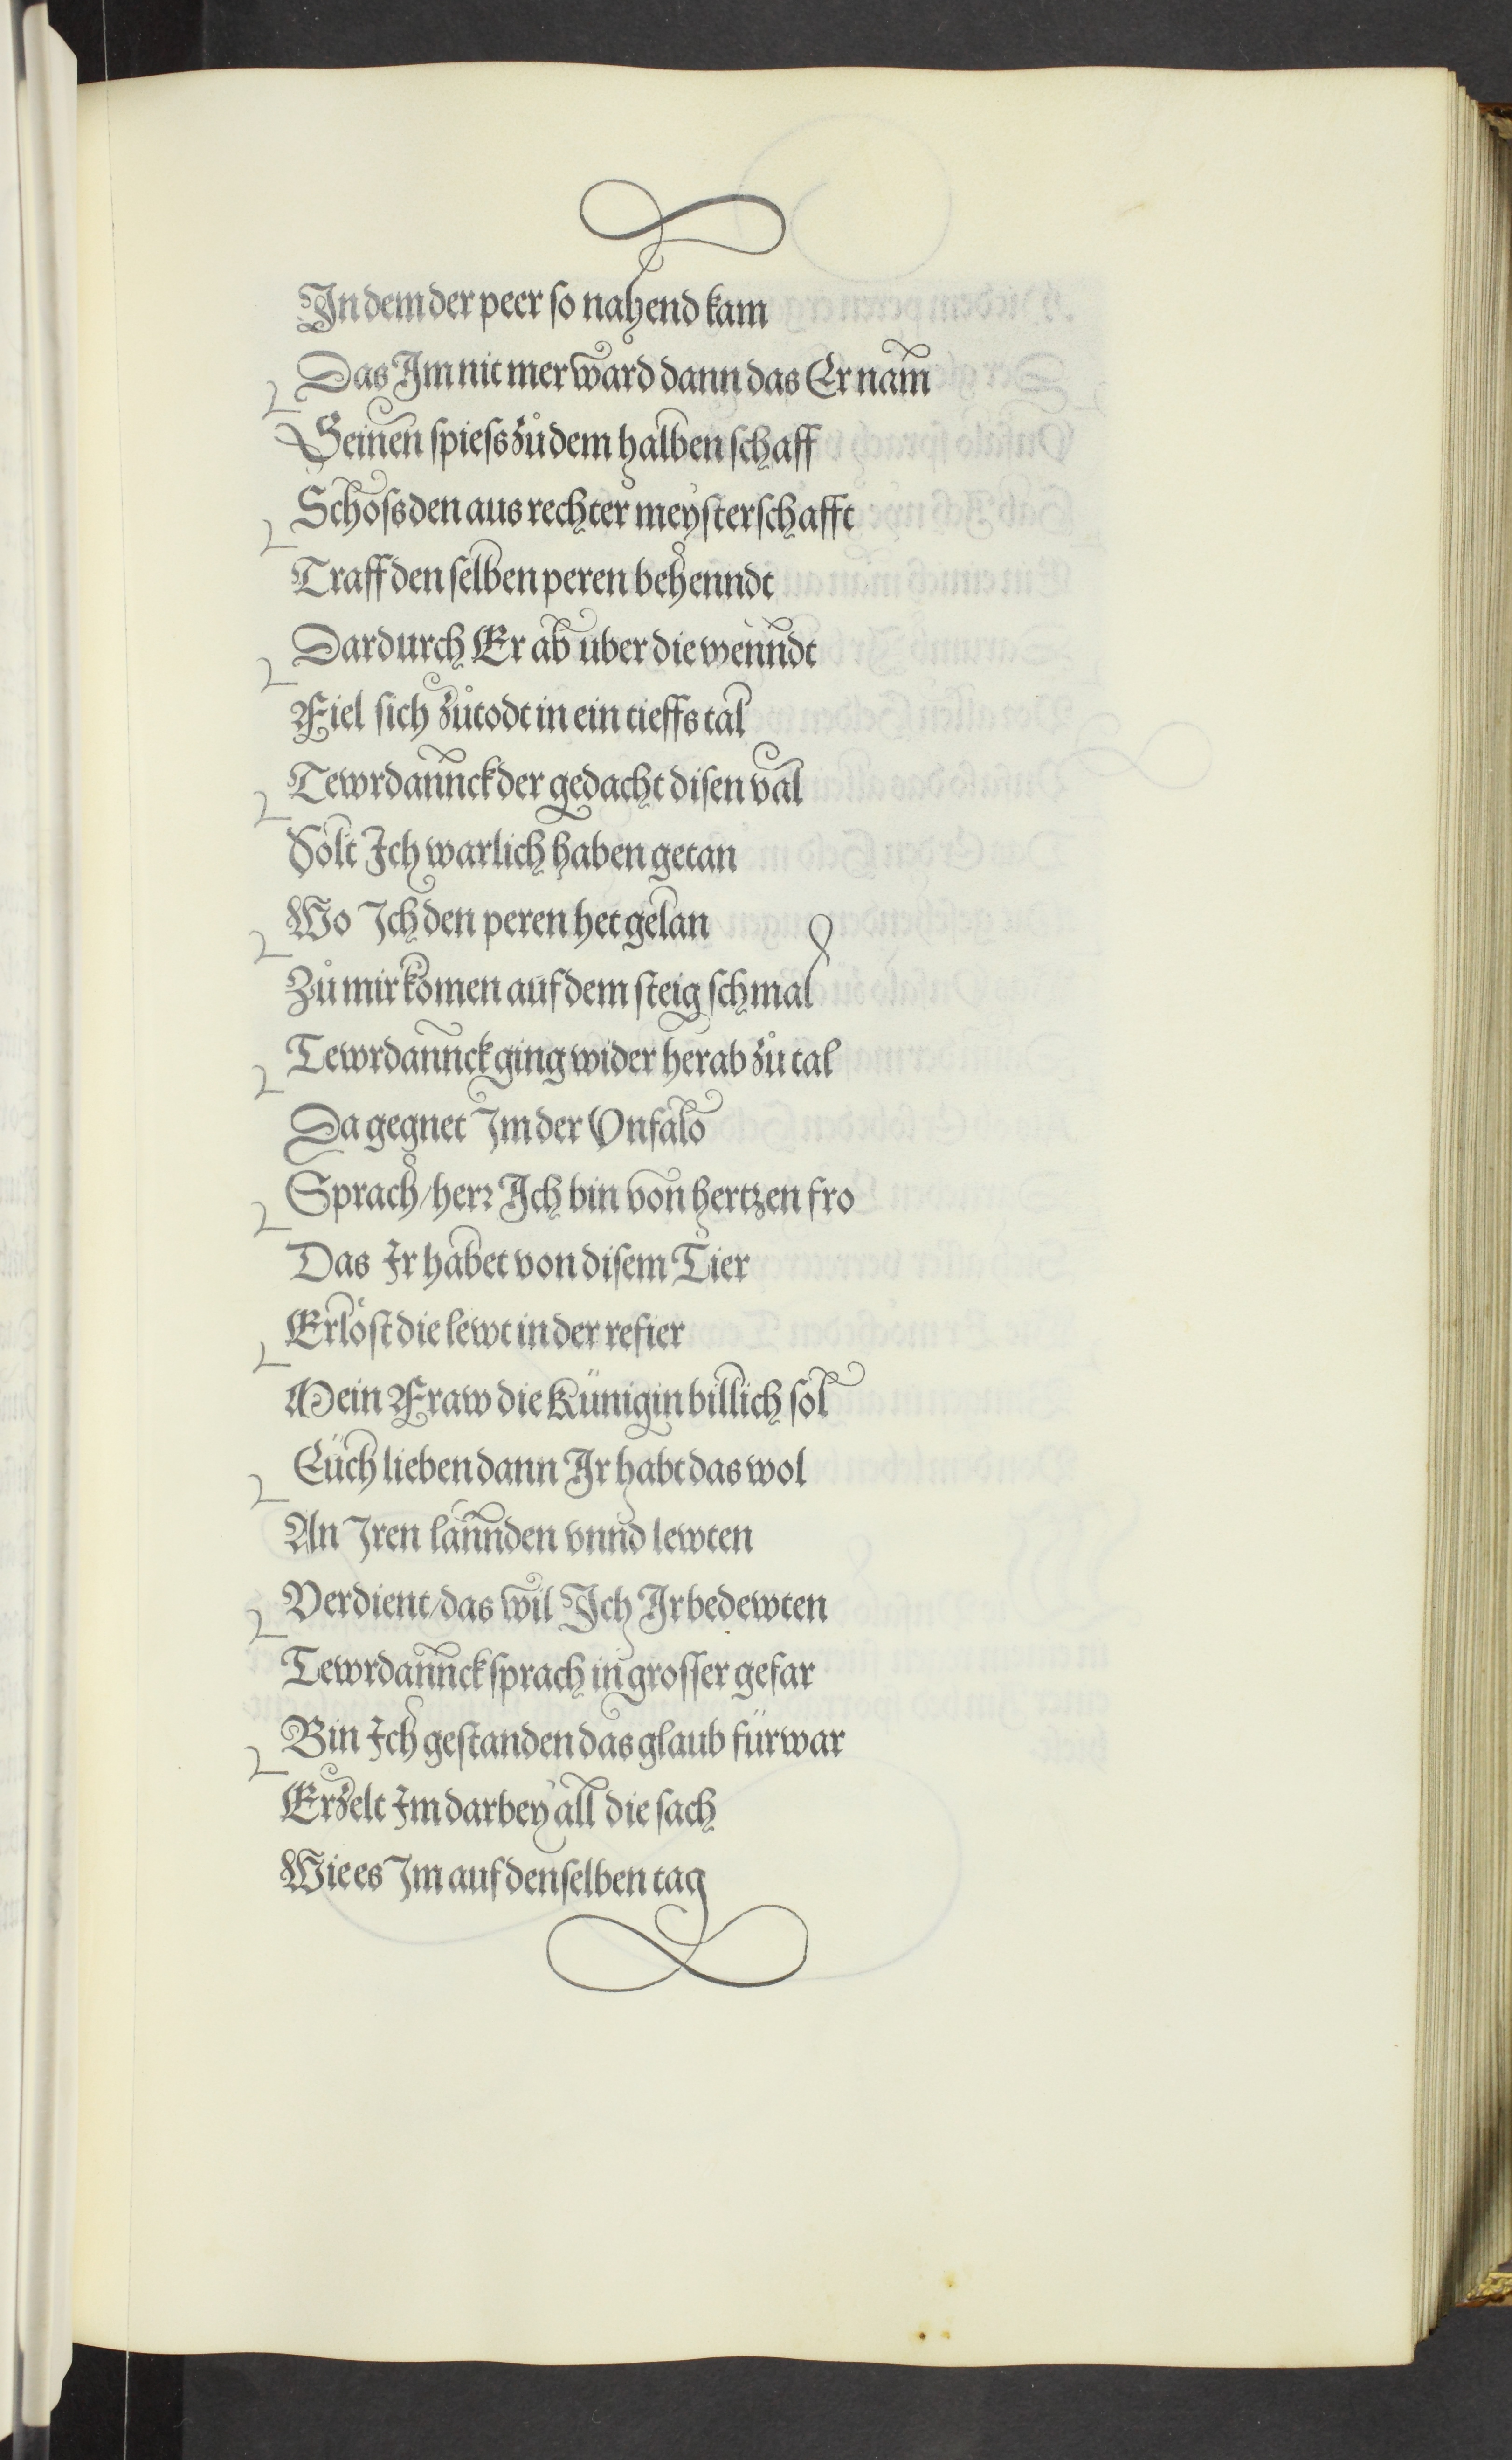 In dem der peer ſo nahend kam
Das Im nit mer ward dann das Er nam
Seinen ſpieſs zů dem halben ſchaff
Schoſs den aus rechter meyſterſchafft
Traff den ſelben peren behenndt
Dardurch Er ab uber die wenndt
Fiel ſich zů todt in ein tieffs tal
Tewrdannck der gedacht diſen val
Solt Ich warlich haben getan
Wo Ich den peren het gelan
Zů mir komen auf dem ſteig ſchmal
Tewrdannck ging wider herab zů tal
Da gegnet Im der Vnfalo
Sprach / herr Ich bin von hertzen fro
Das Ir habet von diſem Tier
Erlöſt die lewt in der refier
Mein Fraw die Künigin billich ſol
Eüch lieben dann Ir habt das wol
An Iren lannden vnnd lewten
Verdient / das wil Ich Ir bedewten
Tewrdannck ſprach in groſſer gefar
Bin Ich geſtanden das glaub fürwar
Erzelt Im darbey all die ſach
Wie es Im auf denſelben tag